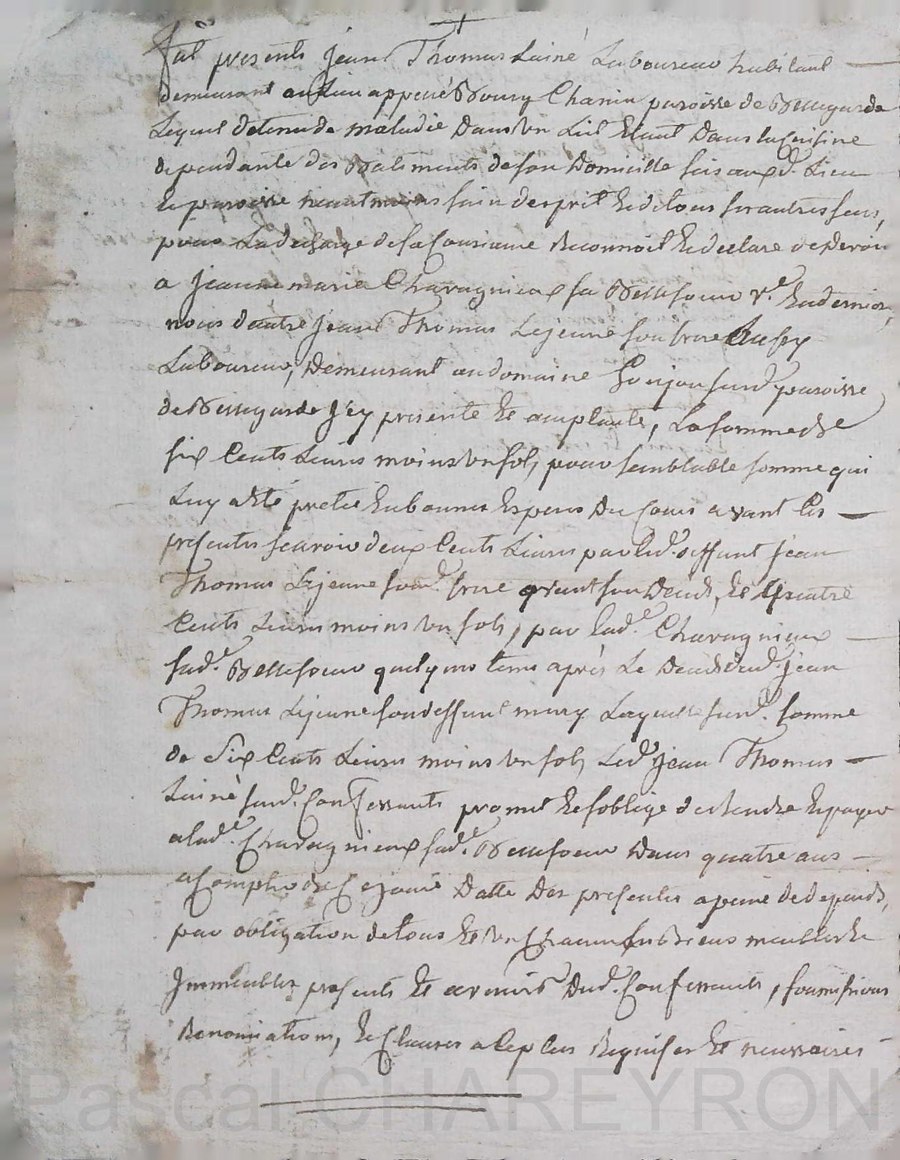 Fut present Jean Thomas Lainé Laboureur habitant
demeurant au Lieu appellé Bourg Chanin paroisse de Bellegarde
Lequel detenu de maladie Dans un Lit Etant Dans la Cuisine
dependante des Batiments de son Domicille sis aud.t Lieu
et paroisse neantmoins sain desprit Et de tous ses autres sens,
pour La decharge de sa Consciance Reconnoit Et declare devoir
a Jeanne marie Charagnieux sa Bellesoeur v.e En dernier
nous dautre Jean Thomas Lejeune son frere Aussy
Laboureur, Demeurant au domaine paroisse
de Bellegarde Icy presente Et acceptante, La somme de
six Cents Livres moins un sols, pour semblable somme qui
Luy a Eté pretée En bonnes Especes Du Cours avant les
presentes scavoir deux Cents Livres par led.t deffunt Jean
Thomas Lejeune sond.t frere avant son Deceds, Et quatre
Cents Livres moins un sols, par lad.e Charagnieux
sad.e Bellesoeur quelque tems après Le Deceds dud.t Jean
Thomas Lejeune son deffunt mary Laquelle susd.e somme
de Six Cents Livres moins un sols Led.t Jean Thomas
Lainé susd.t Confessants promet Et soblige de Rendre Et payer
a lad.e Charagnieux sad.e Bellesoeur Dans quatre ans
a Compter de Ce jour Datte Des presentes a peine de depends,
par obligation de tous Et un Chacun ses Biens meubles Et
Immeubles presents Et avenirs Dud.t Confessants, soumissions
Renonciations, Et Clauses a Ce plus Requises Et necessaires
Pascal CHAREYRON